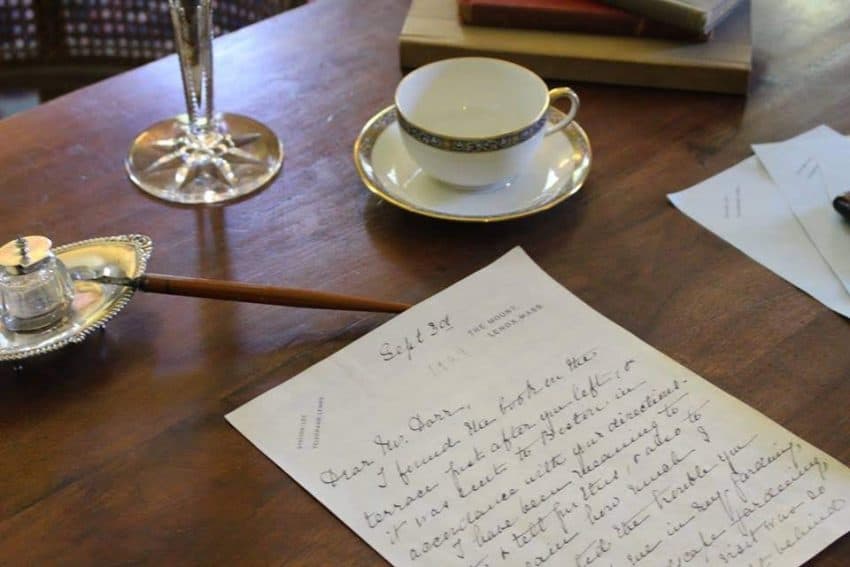 THE MOUNT,
LENOX, MASS.
Sept 3d
1904
STATION: LEE
TELEGRAPH: LENOX
Dear Mr. Dorr,
I found the book on the
terrace just after you left, &
it was sent to Boston, in
accordance with your directions.
I have been meaning to
& tell you this, & also to
how much I
the trouble you
me in my gardening,
gardening,
visit was so
behind